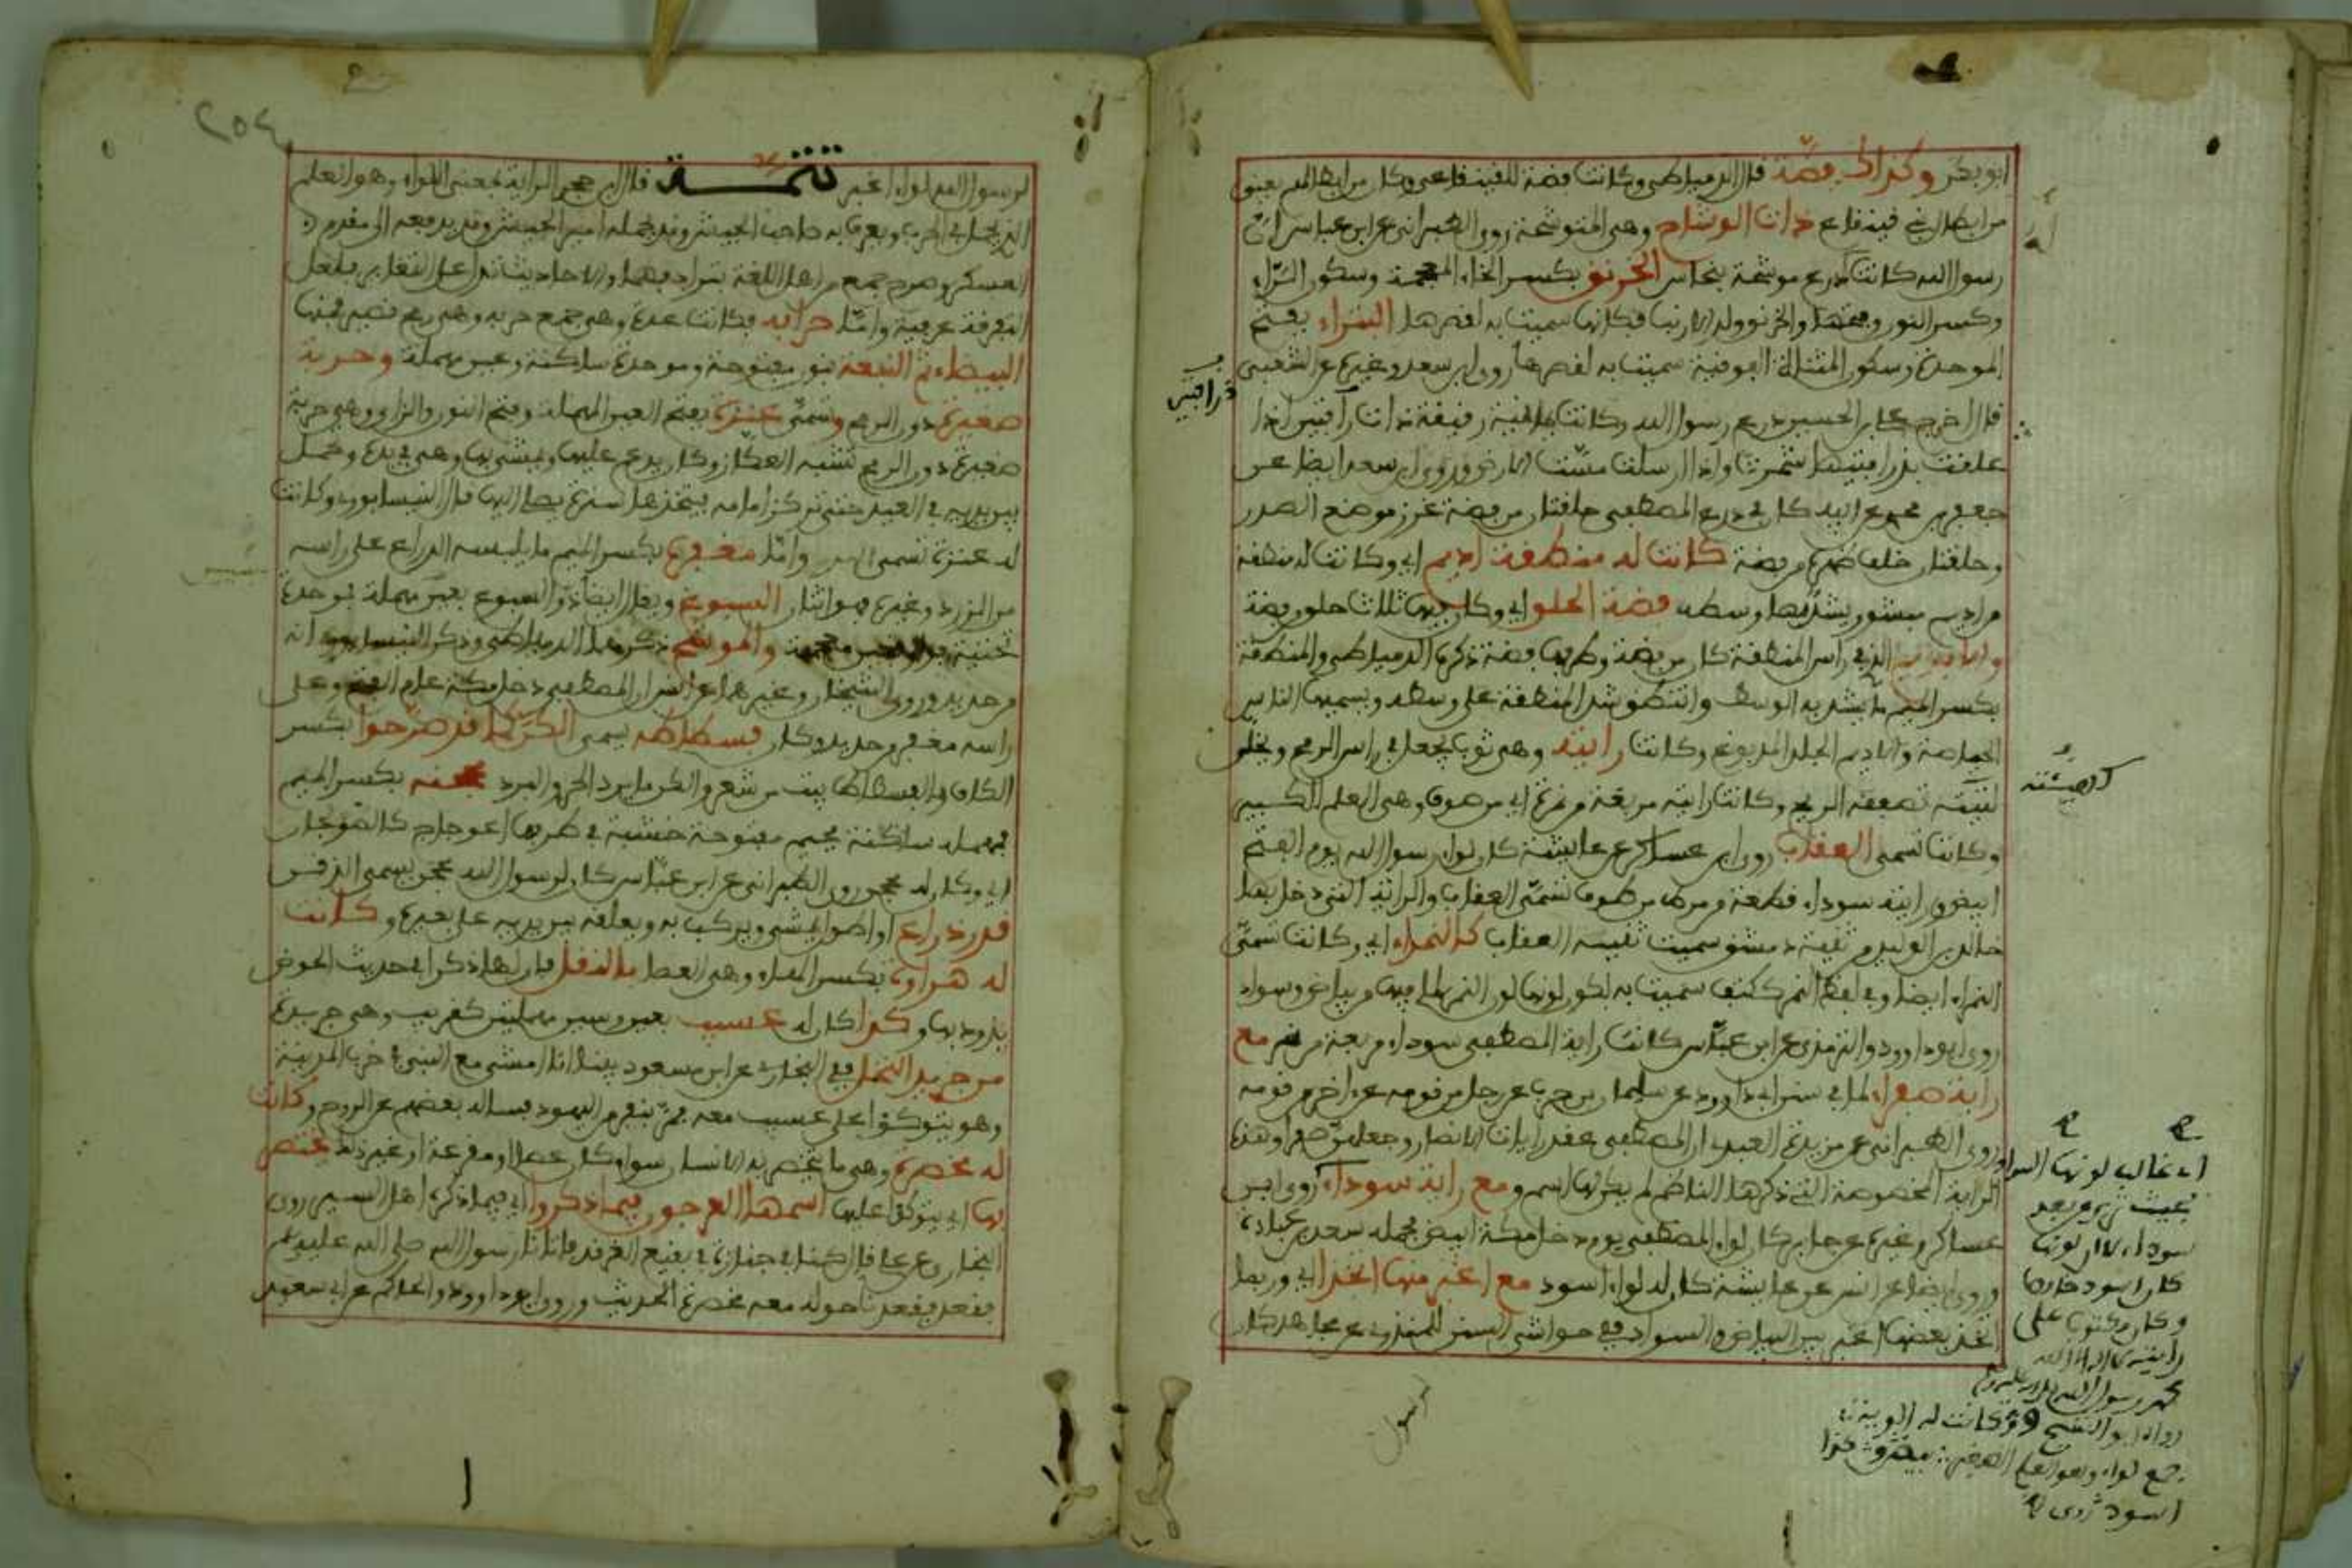 ابو بكر وكذا فضة قال الدمياطي وكانت فضة للقينقاعي وكل من ايضا لهم يعني
من ايضا لبني قينقاع ذات الوشاح وهي المتوشحة روى الطبراني عن ابن عباس ان
رسول الله كانت له درع موشحة بنحاس الخرنق بكسر الخاء المعجمة وسكون الراء
وكسر النون وفتحها والخرنق ولد الارنب فكانها سميت به لقصرها البتراء بفتح
الموحدة وسكون المثناة الفوقية سميت به لقصرها روى ابن سعد وغيره عن الشعبي
قال اخرج علي بن الحسين درع رسول الله وكانت يمانية رقيقة ذات زرافين اذا
علقت بزرافينها شمرت واذا ارسلت مست الارض وروى ابن سعد ايضا عن
جعفر بن محمد عن ابيه كان في درع المصطفى حلقتان من فضة عند موضع الصدر
وحلقتان خلف ظهره من فضة كانت له منطقة اديم اي وكانت له منطقة
من اديم مبشور يشد بها وسطه فضة الحلق اي وكان فيها ثلاث حلق من فضة
الذي في راس المنطقة كان من فضة وطرفها فضة ذكره الدمياطي والمنطقة
بكسر الميم ما يشد به الوسط وانتطق شد المنطقة على وسطه ويسميها الناس
الحياصة والاديم الجلد المدبوغ وكانت رايته وهي ثوب يجعل في راس الرمح ويخلى
كهيئته تصفقه الريح وكانت رايته مربعة من نمرة اي من صوف وهي العلم الكبير
وكانت تسمى العقاب روى ابن عساكر عن عايشة كان لواء رسول الله يوم الفتح
ابيض ورايته سوداء قطعة من مرط مرحل وكانت تسمى العقاب والراية التي دخل بها
خالد بن الوليد من ثنية دمشق سميت ثنية العقاب كذا النمراء اي وكانت تسمى
النمراء ايضا وفي لفظ النمر ككتف سميت به لكون لونها لون النمر لما فيها من بياض وسواد
روى ابو داوود والترمذي عن ابن عباس كانت راية المصطفى سوداء مربعة من نمر مع
راية صفراء لما في سنن ابي داوود عن سماك بن حرب عن رجل من قومه عن اخر من قومه
وروى الطبراني عن مزيدة العبدي ان المصطفى عقد رايات الانصار وجعلهن صفرا وهذه
الراية المخصوصة التي ذكرها الناظم لم يذكر لها اسم ومع راية سوداء روى ابن
عساكر وغيره عن جابر كان لواء المصطفى يوم دخل مكة ابيض يحمله سعد بن عبادة
وروى ايضا عن انس عن عايشة كان له لواء اسود مع اغبر منها اتخذا اي وربما
اتخذ بعضها اغبر بين البياض والسواد ففي حواشي السنن للمنذري عن مجاهد كان
زرافين
كهيئته
اي غالب لونها السواد
بحيث ترى من بعد
سوداء لا ان لونها
كان اسود خالصا
وكان مكتوب على
رايته لا اله الا الله
محمد رسول الله
رواه ابو الشيخ وقد كانت له الوية
جمع لواء وهو العلم الصغير بيض وكذا
اسود
رسول
٢٥٤
لرسول الله لواء اغبر تتمة قال ابن حجر الراية بمعنى اللواء وهو العلم
الذي يحمل في الحرب ويعرف به صاحب الجيش وقد يحمله امير الجيش وقد يدفعه الى مقدم
العسكر وصرح جمع من اهل اللغة بترادفهما والاحاديث تدل على التغاير فلعل
التفرقة عرفية واما حرابه فكانت عدة وهي جمع حربة وهي رمح قصير فمنها
البيضاء ثم النبعة بنون مفتوحة وموحدة ساكنة وعين مهملة وحربة
صغيرة دون الرمح وتسمى عنزة بفتح العين المهملة وفتح النون والزاي وهي حربة
صغيرة دون الرمح تشبه العكاز وكان يدعم عليها ويمشي بها وهي في يده وتحمل
بين يديه في العيد حتى تركز امامه فيتخذها سترة يصلي اليها قال النيسابوري وكانت
له عنزة تسمى واما مغفره بكسر الميم ما يلبسه الدارع على راسه
من الزرد وغيره فهو اثنان السبوغ ويقال ايضا ذو السبوغ بسين مهملة فموحدة
والموشح ذكرهما الدمياطي وذكر النيسابوري انه
من حديد وروى الشيخان وغيرهما عن انس ان المصطفى دخل مكة عام الفتح وعلى
راسه مغفر من حديد وكان فسطاطه يسمى الكن كما قد صرحوا بكسر
الكاف والفسطاط بيت من شعر والكن ما يرد الحر والبرد محجنه بكسر الميم
فمهملة ساكنة فجيم مفتوحة خشبة في طرفها اعوجاج كالصولجان
اي وكان له محجن روى الطبراني عن ابن عباس كان لرسول الله محجن يسمى الدقن
قدر ذراع او اطول يمشي ويركب به ويعلقه بين يديه على بعيره وكانت
له هراوة بكسر الهاء وهي العصا بالنقل فان لها ذكرا في حديث الحوض
يذود بها وكذا كان له عسيب بعين وسين مهملتين كقريب وهي جريدة
من جريد النخل ففي البخاري عن ابن مسعود بينا انا امشي مع النبي في خرب المدينة
وهو يتوكؤ على عسيب معه فمر بنفر من اليهود فساله بعضهم عن الروح وكانت
له مخصرة وهي ما يختصر به الانسان سواء كان عصا او مقرعة او غير ذلك تختص
بها اي يتوكؤ عليها اسمها العرجون فيما ذكروا اي فيما ذكره اهل السير روى
البخاري عن علي قال كنا في جنازة في بقيع الغرقد فاتانا رسول الله صلى الله عليه وسلم
فقعد وقعدنا حوله معه مخصرة الحديث وروى ابو داوود والحاكم عن ابي سعيد